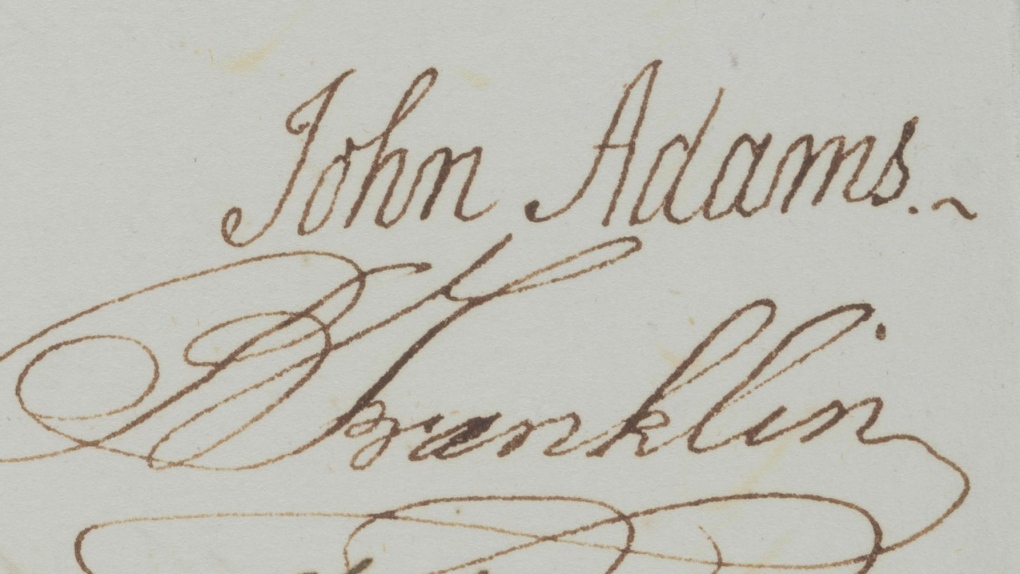 John Adams.~
B Franklin